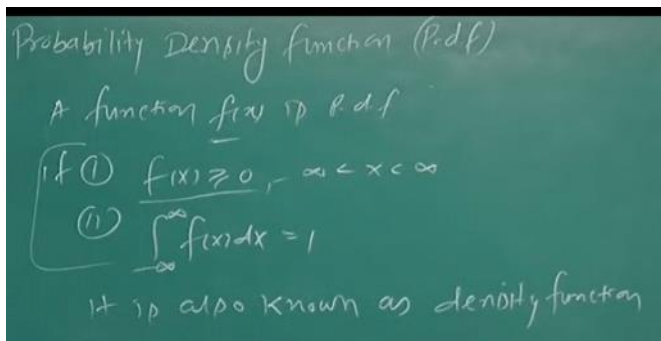 Probability Density function (P.d.f)
A function f(x) is P.d.f
if ① f(x) ≥ 0, -∞ < x < ∞
(ii) ∫_{-∞}^{∞} f(x) dx = 1
It is also known as density function